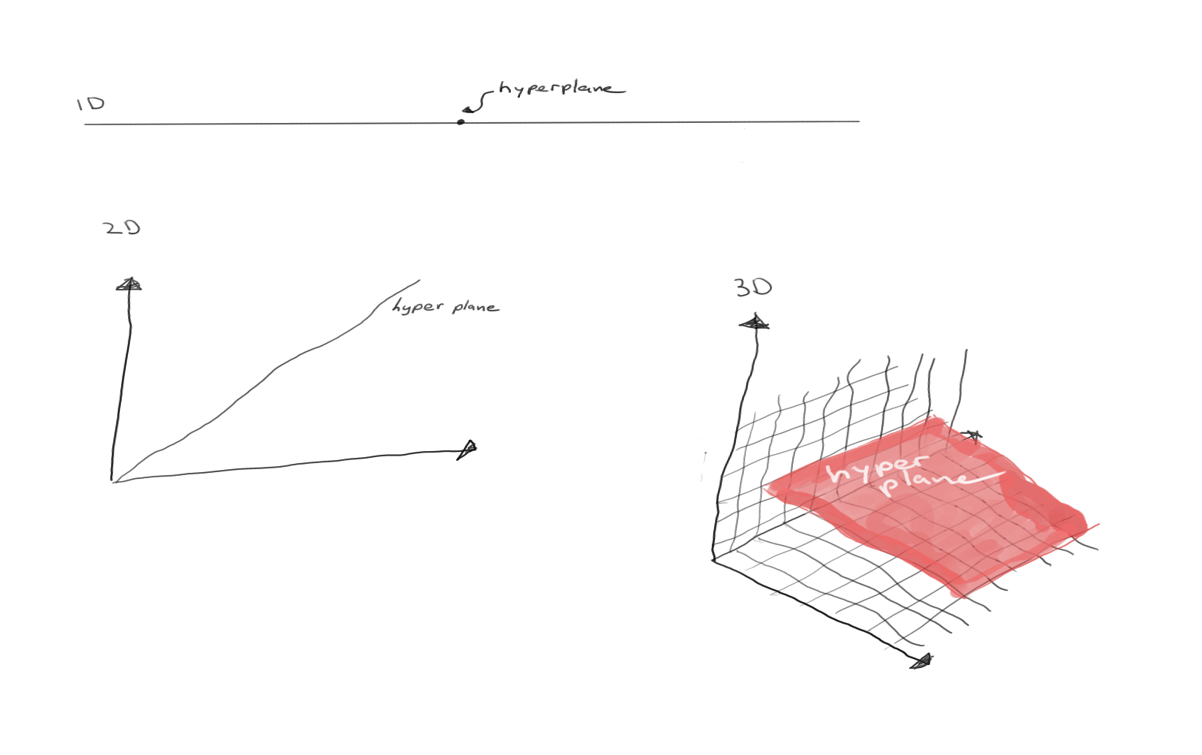 1D
hyperplane
2D
hyper plane
3D
hyper
plane